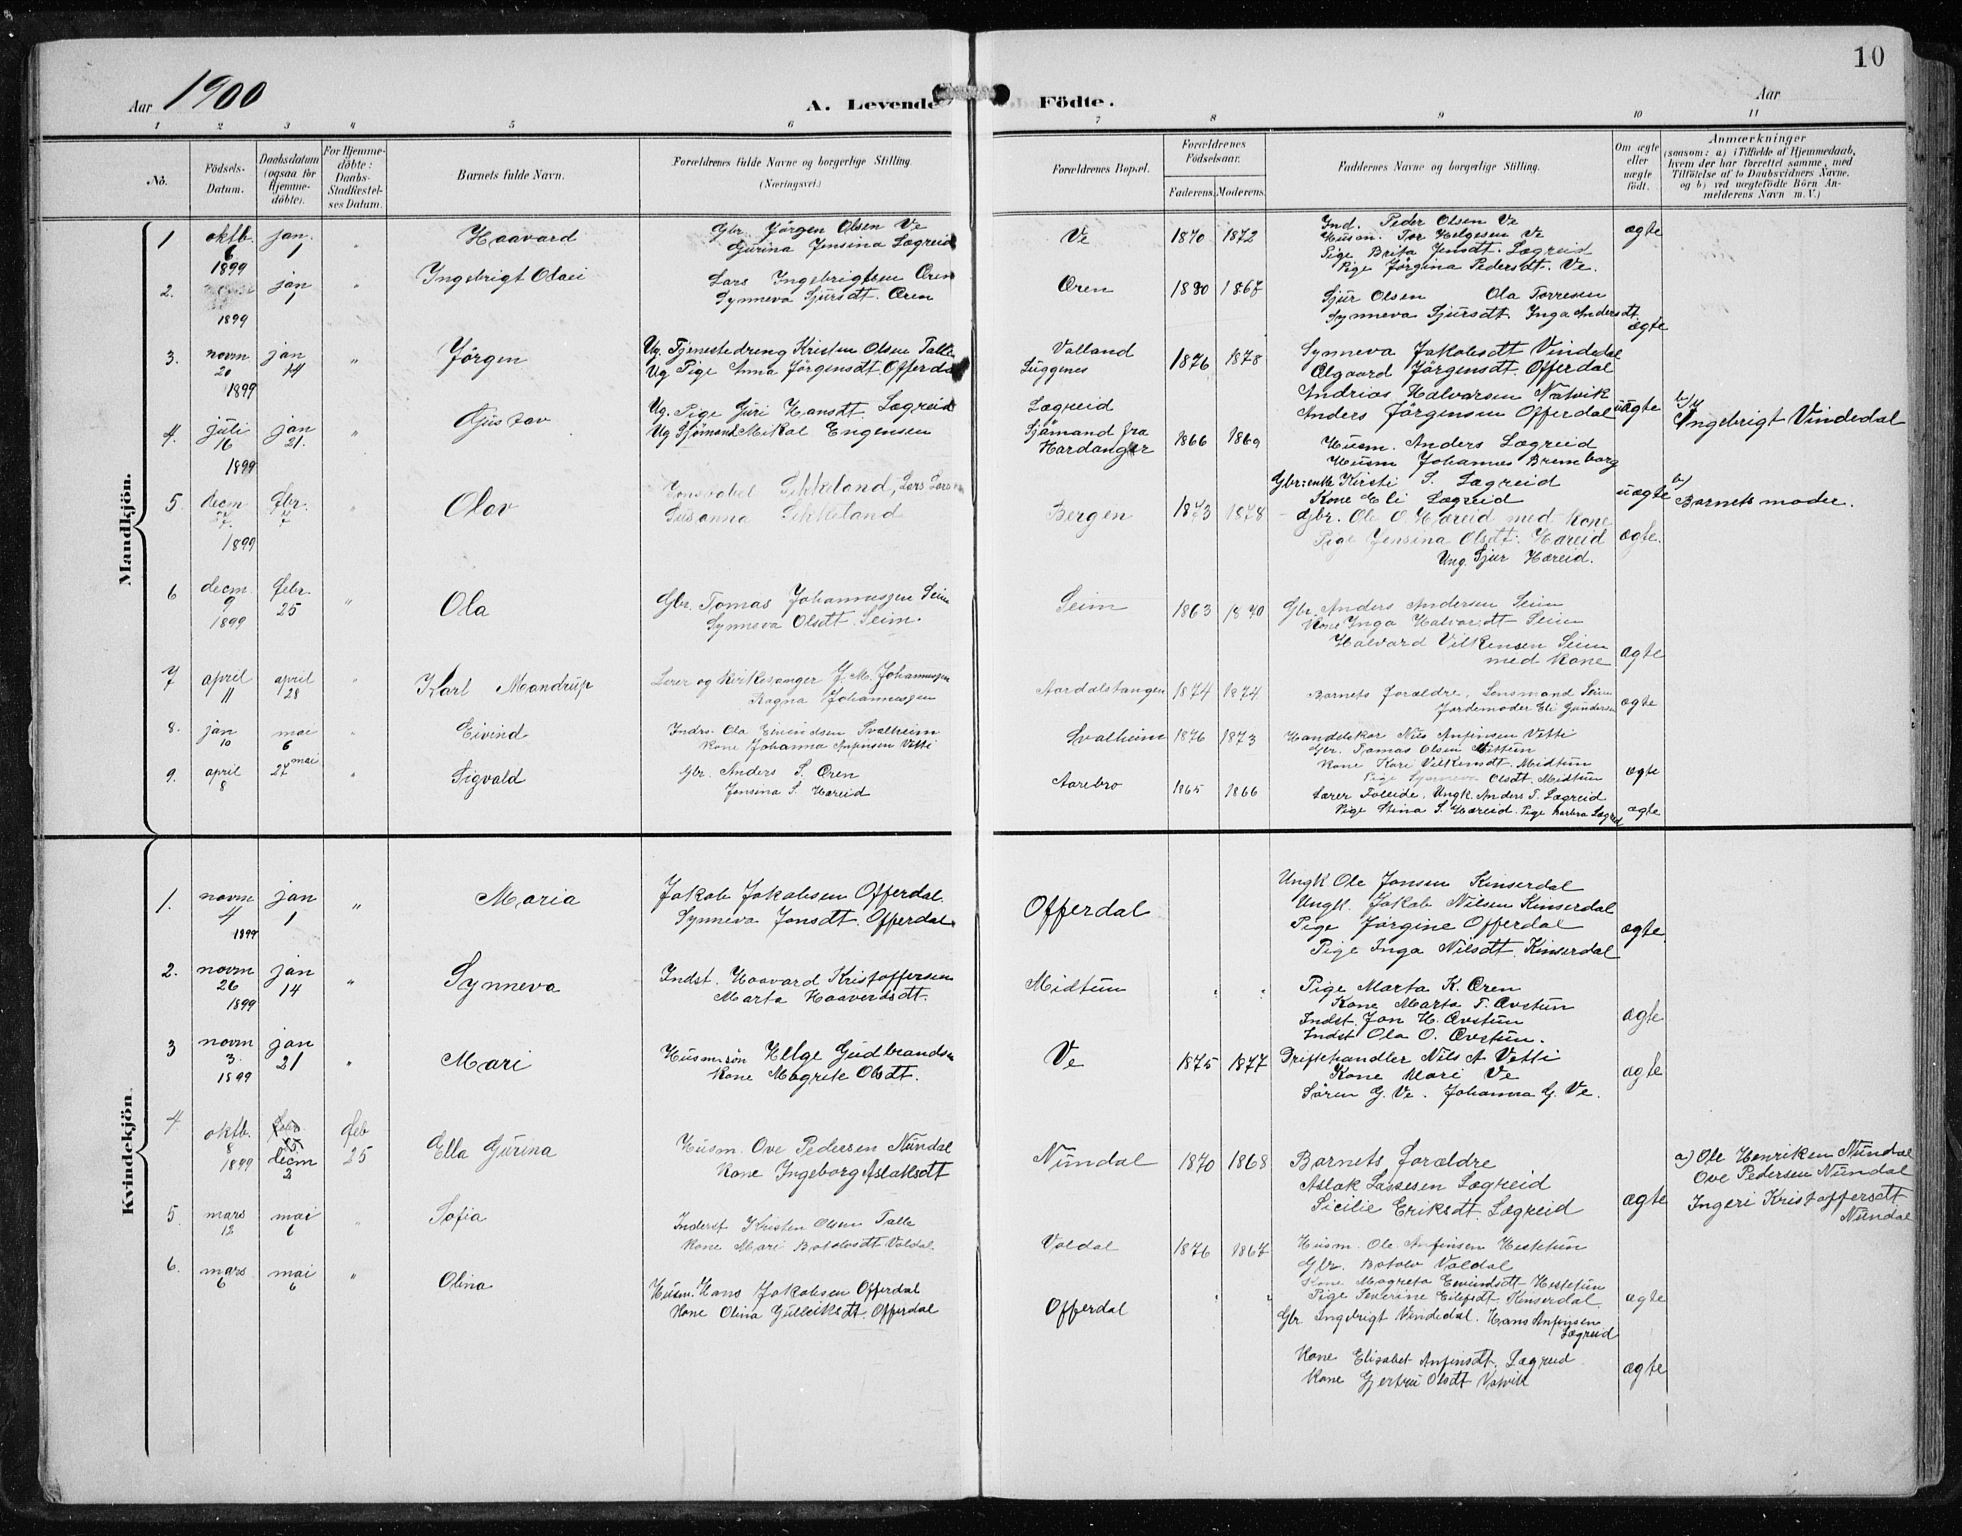 10
Aar 1900
A. Levende Födte.
Aar
1 2 3 4 5 6 7 8 9 10 11
No.
Födsels-Datum.
Daabsdatum (ogsaa for Hjemme-döbte).
For Hjemme-döbte: Daabs-Stadfæstel-ses Datum.
Barnets fulde Navn.
Forældrenes fulde Navne og borgerlige Stilling. (Næringsvei.)
Forældrenes Bopæl.
Forældrenes Födselsaar.
Faderens. Moderens.
Faddernes Navne og borgerlige Stilling.
Om ægte eller uægte födt.
Anmærkninger
(saasom: a) i Tilfælde af Hjemmedaab, hvem der har forrettet samme, med Tilföielse af to Daabsvidners Navne, og b) ved uægtefödte Börn An-melderens Navn m. V.)
Mandkjön.
1 oktb. 6 1899 jan. 1 " Haavard
Gbr. Jörgen Olsen Ve
Gurina Jensina Lægreid
Ve 1870 1872
Ind. Peder Olsen Ve
Husm. Tor Helgesen Ve
Pige Brita Jensdt. Lægreid
Pige Jörgina Pedersdt. Ve.
ægte
2. 1899 jan 1 " Ingebrigt Olaei
Lars Ingebrigtsen Øren
Synneva Sjursdt. Øren
Øren 1880 1867
Sjur Olsen Ola Torresen
Synneva Sjursdt. Inga Andersdt
ægte
3. novm 20 1899 jan 14 " Jörgen
Ug. Tjenestedreng Kristen Olsen Talle
Ug Pige Anna Jörgensdt. Offerdal
Valland
Luggenes
1876 1878
Synneva Jakobsdt Vindedal
Ølgaard Jörgensdt. Offerdal
Andrias Halvarsen Natvik
Anders Jörgensen Offerdal
uægte
b)
Ingebrigt Vindedal
4. juli 16 1899 jan 21. " Gustav
Ug. Pige Guri Hansdt. Lægreid
Ug Sjömand Mikal Engensen
Lægreid
Sjömand fra
Hardanger
1866 1869
Husm. Anders Lægreid
Husm Johannes Bremborg
Gbr:enke Kirsti S. Lægreid
Kone Eli Lægreid
uægte
b)
Barnets moder.
5 decm 1899 Febr. 7 " Olav
Konstabel Sikkeland, Lars
Susanna Sikkeland
Bergen 1873 1878
Gbr. Ole O. Hæreid med Kone
Pige Jensina Olsdt. Hæreid
Ung. Sjur Hæreid.
ægte.
6 decm. 9 1899 Febr. 25 " Ola
Gbr. Tomas Johannessen Seim
Synneva Olsdt. Seim.
Seim 1863 1870
Gbr. Anders Andersen Seim
Kone Inga Halvardt Seim
Halvard Vilkensen Seim
med Kone
ægte
7 april 11 april 28 " Karl Mandrup
Lærer og Kirkesanger J. M. Johannessen
Ragna Johannessen
Aardalstangen 1874 1874
Barnets forældre, Lensmand Seim
Jordemoder Eli Gundersen
ægte
8. jan 10 mai 6 " Eivind
Indrs. Ola Eivindsen Svalheim
Kone Johanna Anfinsen Vetti
Svalheim 1876 1873
Handelskar Nils Anfinsen Vetti
Gbr. Tomas Olsen Mittun
Kone Kari Vilkensdt. Midtun
Pige Synneva Olsdt. Midtun
ægte
9. april 8 27 mai " Sigvald
Gbr. Anders S. Øren
Jensina S. Hæreid
Aarebro 1865 1866
Lærer Foleide. Ungk. Anders T. Lægreid
Pige Stina S. Hæreid. Pige Barbra Lægreid
ægte
Kvindekjön.
1. novm 4 1899 jan 1 " Maria
Jakob Jakobsen Offerdal.
Synneva Jonsdt. Offerdal.
Offerdal
Ungk Ole Jonsen Kinserdal
Ungk. Jakob Nilsen Kinserdal
Pige Jörgine Offerdal
Pige Inga Nilsdt. Kinserdal
ægte.
2. novm 26 1899 jan 14 " Synneva
Indst. Haavard Kristoffersen
Marta Haavardsdt.
Midtun " "
Pige Marta K. Øren
Kone Marta T. Øvstun
Indst. Jon H. Øvstun
Indst Ola O. Øvstun.
ægte
3 novm 3. 1899 jan 21 " Mari
Husm.sön Helge Gudbrands
Kone Magrete Olsdt.
Ve 1875 1877
Driftehandler Nils A Vetti
Kone Mari Ve
Sören G. Ve. Johanna G. Ve.
ægte
4 oktb. 8 1899 decm 3 Feb 25 Ella Gurina
Husm. Ove Pedersen Nundal
Kone Ingeborg Aslaksdt
Nundal 1870 1868
Barnets forældre
Aslak Lassesen Lægreid
Sicilie Eriksdt. Lægreid
ægte
a) Ole Henriken Nundal
Ove Pedersen Nundal
Ingeri Kristoffersdt
Nundal
5. mars 12 mai 6 " Sofia
Inderst Kristen Olsen Talle
Kone Mari Botolvsdt Valdal.
Valdal 1876 1867
Husm. Ole Anfinsen Hestetun
Gbr. Botolv Valdal
Kone Magreta Eivindsdt Hestetun
Pige Severine Eilefsdt Kinserdal.
ægte
6. mars 6 mai 6 " Olina
Husm. Hans Jakobsen Offerdal
Kone Olina Gulleiksdt. Offerdal
Offerdal " "
Gbr Ingebrigt Vindedal. Hans Anfinsen
Lægreid
Kone Elisabet Anfinsdt. Lægreid
Kone Gjertru Olsdt Natvik
ægte